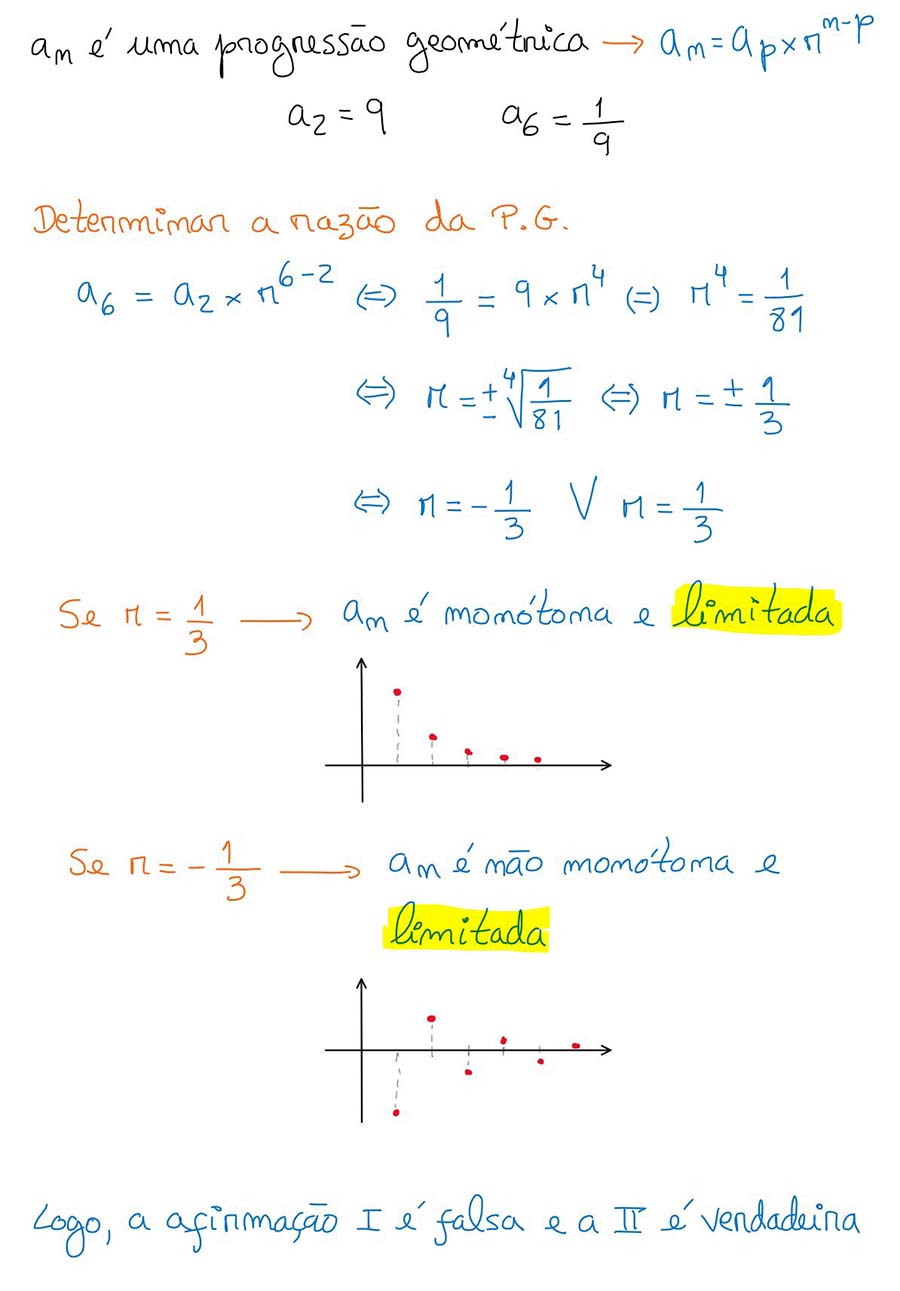 aₙ é uma progressão geométrica → aₙ = aₚ × rⁿ⁻ᵖ
a₂ = 9 a₆ = 1/9
Determinar a razão da P.G.
a₆ = a₂ × r⁶⁻² ⇔ 1/9 = 9 × r⁴ ⇔ r⁴ = 1/81
⇔ r = ± ⁴√(1/81) ⇔ r = ± 1/3
⇔ r = - 1/3 ∨ r = 1/3
Se r = 1/3 → aₙ é monótona e limitada
Se r = - 1/3 → aₙ é não monótona e
limitada
Logo, a afirmação I é falsa e a II é verdadeira